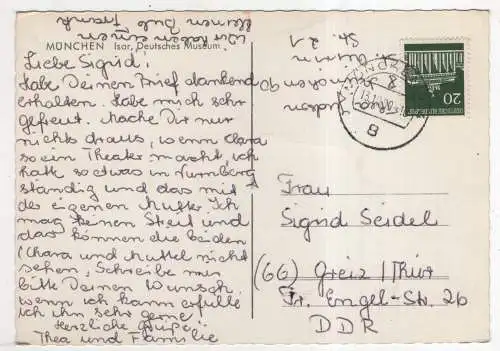 MÜNCHEN Isar, Deutsches Museum
Liebe Sigrid!
Habe Deinen Brief dankend
erhalten. Habe mich sehr
gefreut. Mache Dir nur
nichts draus, wenn Clara
so ein Theater macht, ich
hatte so etwas in Nürnberg
ständig und das mit
der eigenen Mutter. Ich
mag keinen Streit und
das können die beiden
(Clara und Muttel nicht
sehen, Schreibe mir
bitte Deinen Wunsch,
wenn ich kann erfülle
ich ihn sehr gerne
Herzliche Grüße
Thea und Familie
Wir haben einen
kleinen
20
8
Frau
Sigrid Seidel
(66) Greiz/Thür
Fr. Engel-Str. 2b
DDR